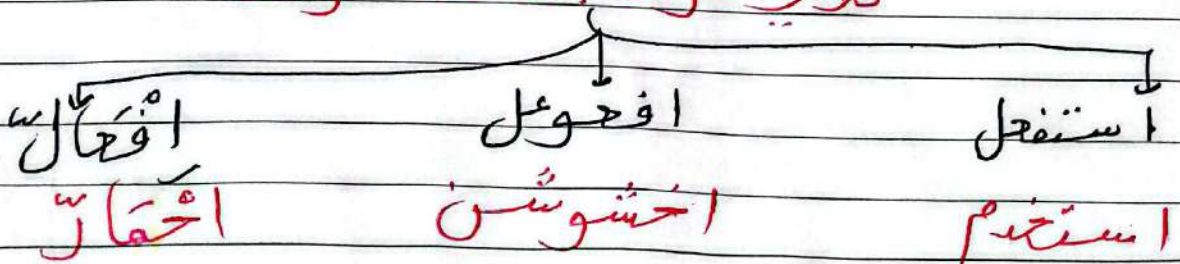 استفعل افعوعل افْعَالّ
استخدم اخشوشن احْمَارّ